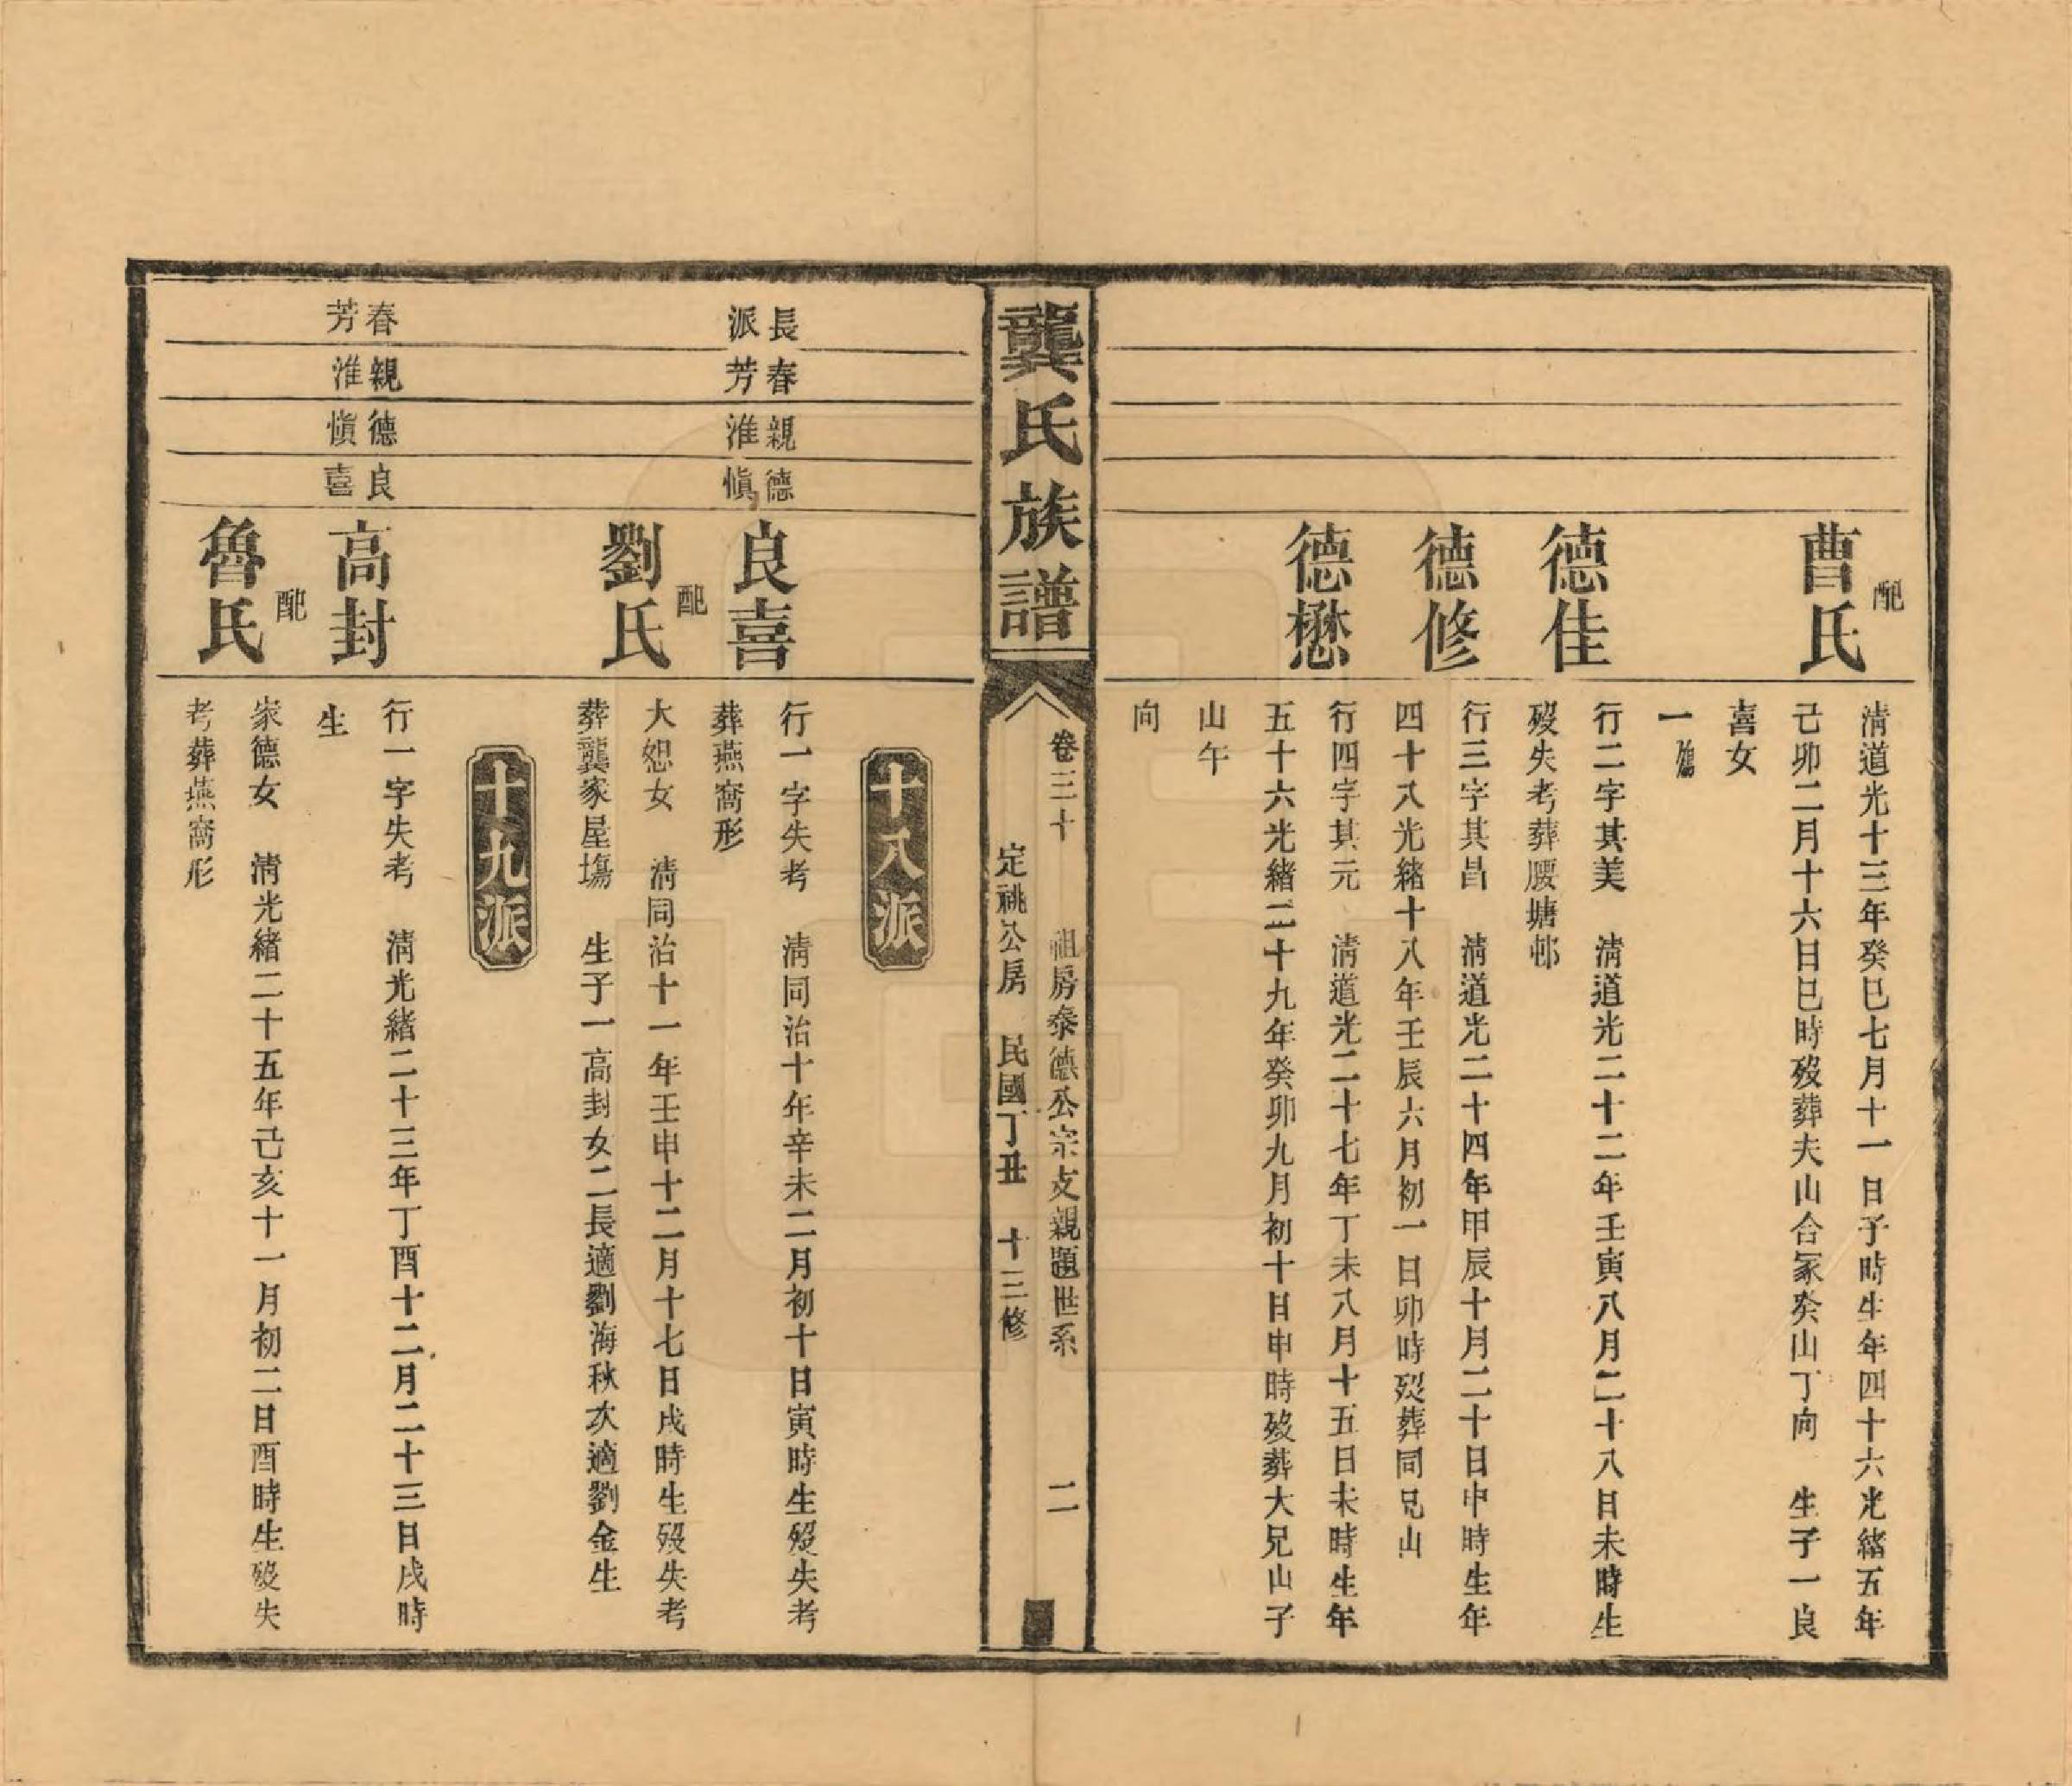 配
曹氏
清道光十三年癸巳七月十一日子時生年四十六光緒五年
己卯二月十六日巳時歿葬夫山合冢癸山丁向　生子一良
喜女
一殤
德佳
行二字其美　清道光二十二年壬寅八月二十八日未時生
歿失考葬腰塘邨
德修
行三字其昌　清道光二十四年甲辰十月二十日申時生年
四十八光緒十八年壬辰六月初一日卯時歿葬同兄山
德懋
行四字其元　清道光二十七年丁未八月十五日未時生年
五十六光緒二十九年癸卯九月初十日申時歿葬大兄山子
山午
向
龔氏族譜
卷三十　祖房泰德公宗支親題世系　二
定祧公房　民國丁丑　十三修
十八派
長春親德
派芳淮愼
良喜
行一字失考　清同治十年辛未二月初十日寅時生歿失考
葬燕窩形
配
劉氏
大恕女　清同治十一年壬申十二月十七日戌時生歿失考
葬龔家屋塲　生子一高封女二長適劉海秋次適劉金生
十九派
春親德良
芳淮愼喜
高封
行一字失考　清光緒二十三年丁酉十二月二十三日戌時
生
配
魯氏
家德女　清光緒二十五年己亥十一月初二日酉時生歿失
考葬燕窩形